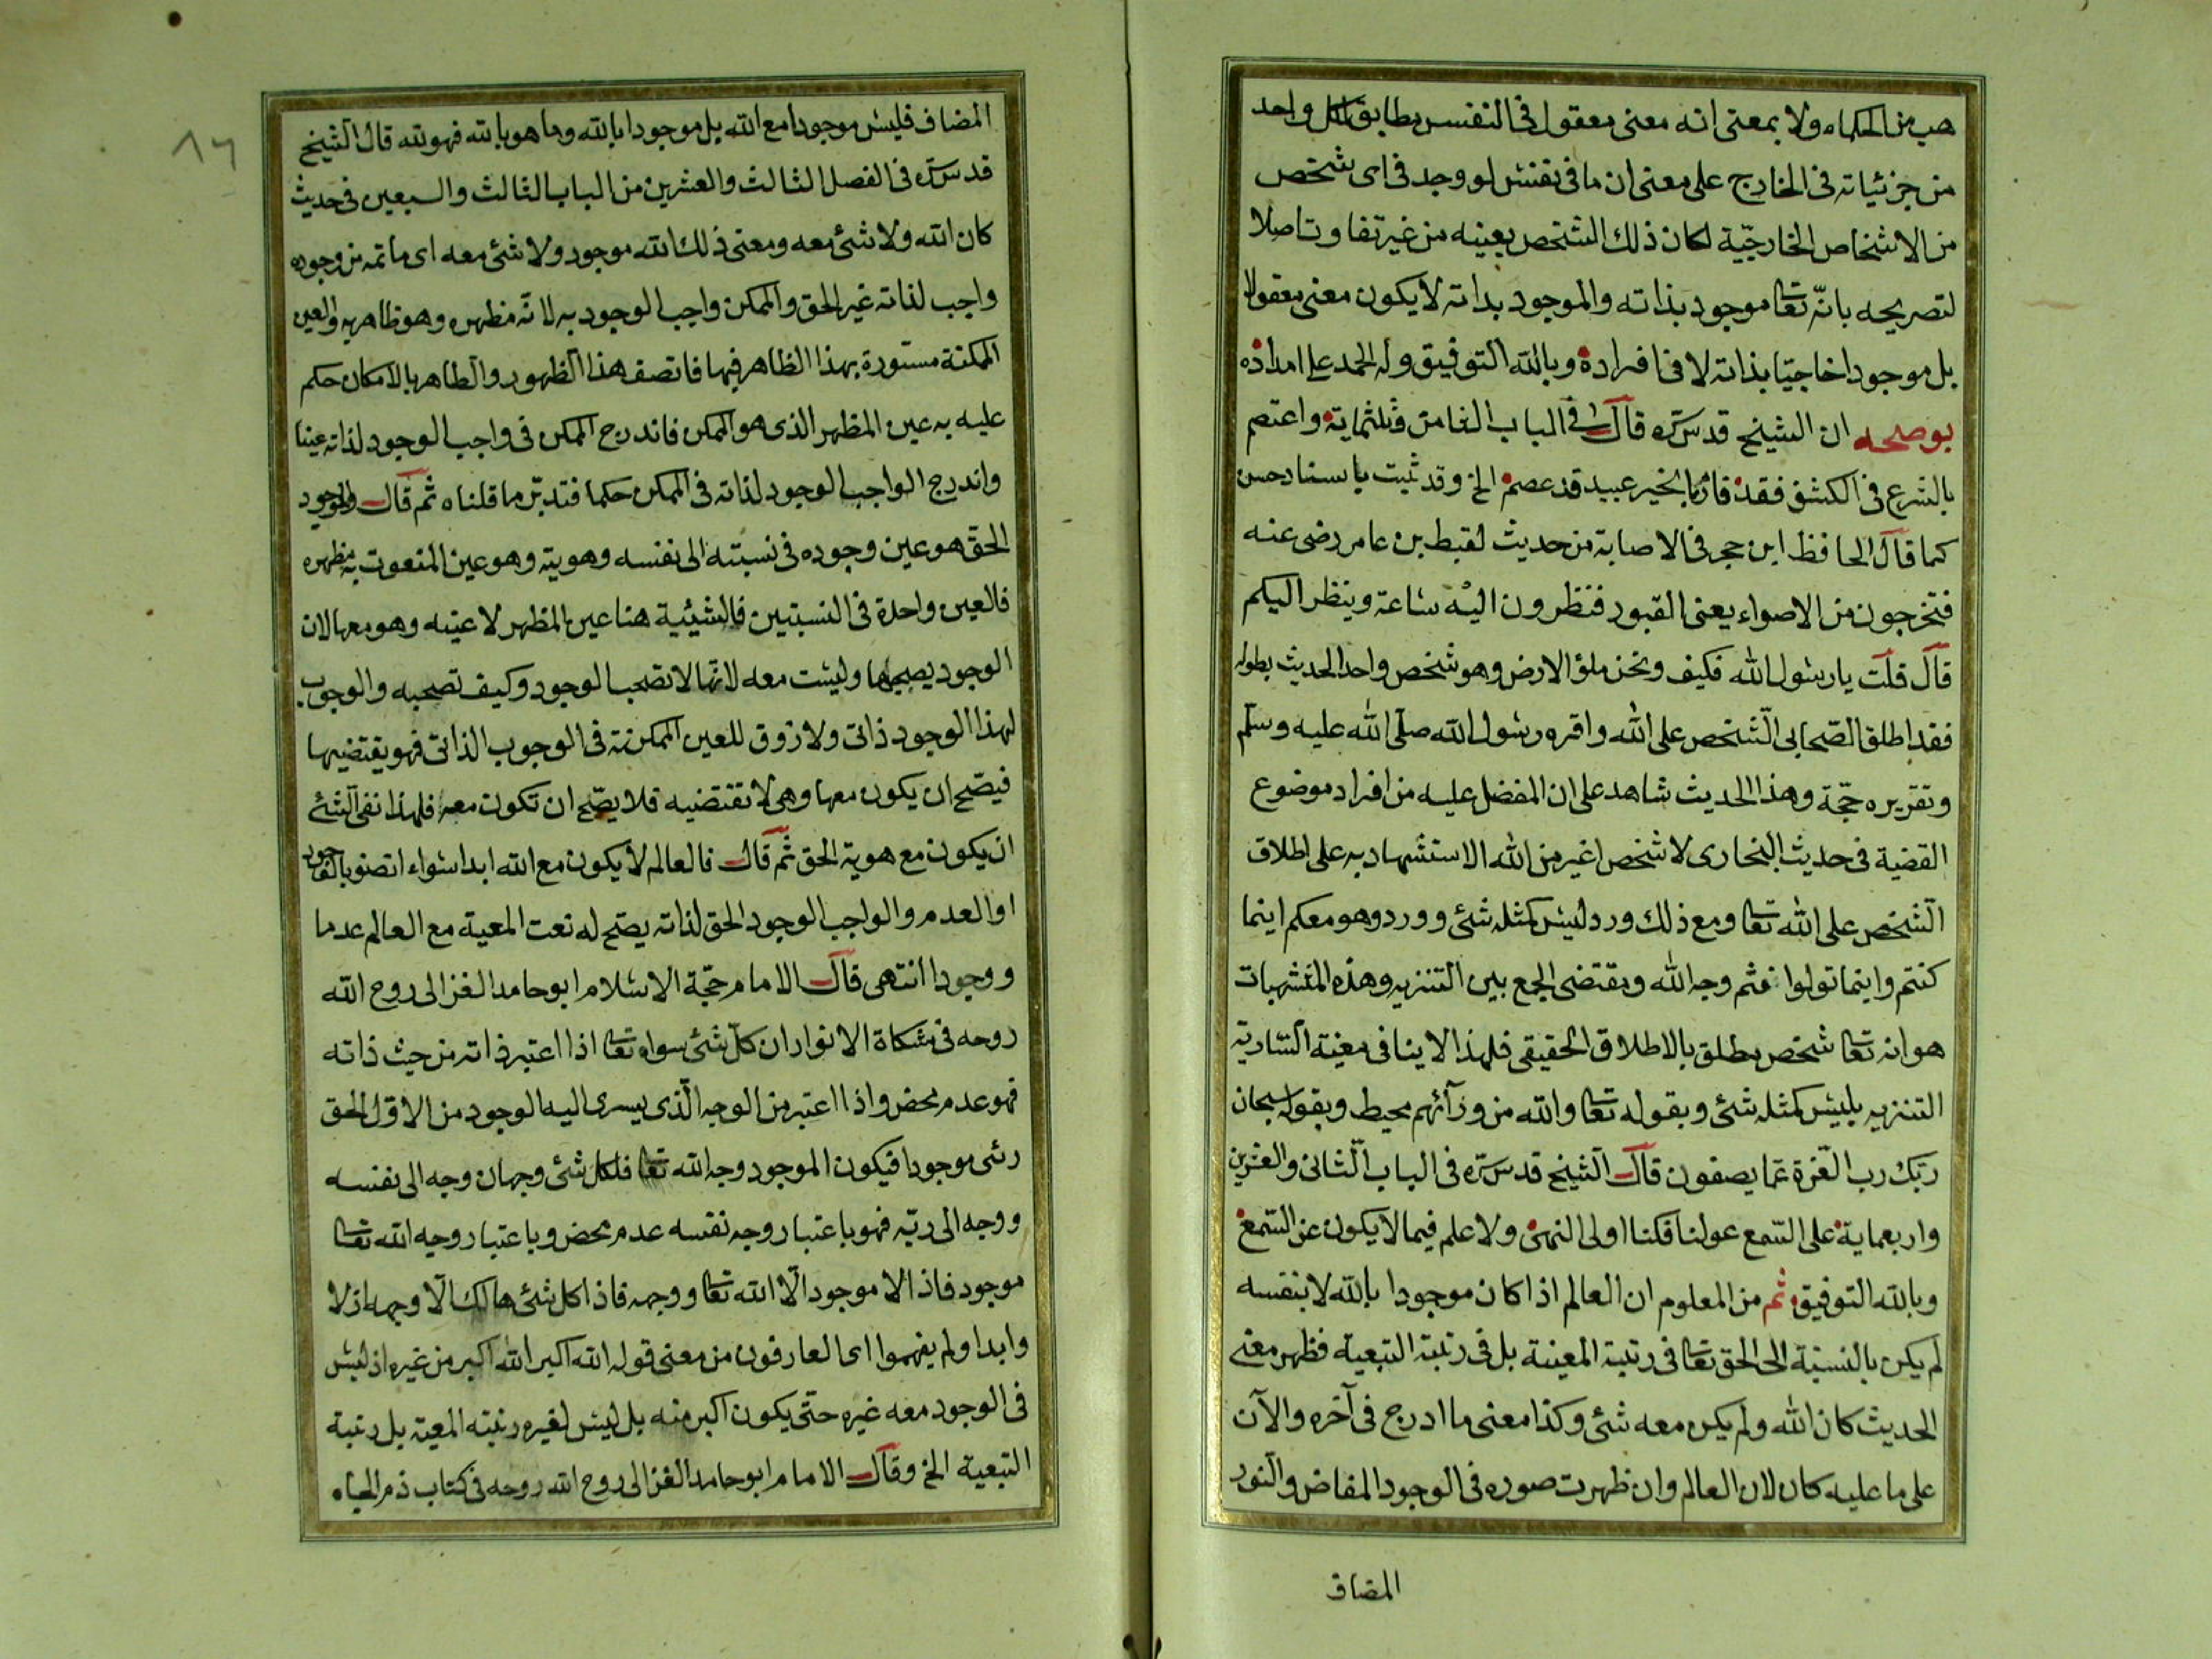 هب من الحكماء ولا بمعنى انه معنى معقول فى النفس مطابق لكل واحد
من جزئياته فى الخارج على معنى ان ما فى نفس لو وجد فى اى شخص
من الاشخاص الخارجيّة لكان ذلك الشخص بعينه من غير تفاوت اصلا
لتصريحه بانّه تعا موجود بذاته والموجود بذاته لا يكون معنى معقولا
بل موجودا خارجيّا بذاته لا فى افراده وبالله التوفيق وله الحمد على امداده
يوضحه ان الشيخ قدس سرّه قال فى الباب الثامن وثلثماية واعتصم
بالشرع فى الكشف فقد فاز بالخير عبيد قد عصم الخ وقد ثبت باسناد حسن
كما قال الحافظ ابن حجر فى الاصابة من حديث لقيط بن عامر رضى عنه
فتخرجون من الاصواء يعنى القبور فتظرون اليه ساعة وينظر اليكم
قال قلت يا رسول الله فكيف ونحن ملؤ الارض وهو شخص واحد الحديث بطوله
فقد اطلق الصّحابى الشّخص على الله واقره رسول الله صلى الله عليه وسلّم
وتقريره حجّة وهذا الحديث شاهد على ان المفضل عليه من افراد موضوع
القضية فى حديث البخارى لا شخص اغير من الله الاستشهاد به على اطلاق
الشّخص على الله تعا ومع ذلك ورد ليس كمثله شئ وورد وهو معكم اينما
كنتم واينما تولوا فثم وجه الله ومقتضى الجمع بين التنزيه وهذه المتشبهات
هو انه تعا شخص مطلق بالاطلاق الحقيقى فلهذا لا ينافى معيّته السّارية
التنزيه بليس كمثله شئ وبقوله تعا والله من ورآئهم محيط وبقوله سبحان
ربّك رب العّزة عمّا يصفون قال الشيخ قدس سرّه فى الباب الثّانى والعشرين
واربعماية على السّمع عولنا فكنا اولى النهى ولا علم فيما لا يكون عن السّمع
وبالله التوفيق ثم من المعلوم ان العالم اذا كان موجودا بالله لا بنفسه
لم يكن بالنسبة الى الحق تعا فى رتبة المعية بل فى رتبة التبعية فظهر معنى
الحديث كان الله ولم يكن معه شئ وكذا معنى ما ادرج فى آخره والآن
على ما عليه كان لان العالم وان ظهرت صوره فى الوجود المفاض والنور
المضاف
المضاف فليس موجودا مع الله بل موجودا بالله وما هو بالله فهو لله قال الشيخ
قدس سرّه فى الفصل الثالث والعشرين من الباب الثالث والسبعين فى حديث
كان الله ولا شئ معه ومعنى ذلك الله موجود ولا شئ معه اى ما ثمه من وجوده
واجب لذاته غير الحق والممكن واجب الوجود به لانّه مظهره وهو ظاهر به والعين
الممكنة مستورة بهذا الظاهر فيها فاتصف هذا الظهور والظاهر بالامكان حكم
عليه به عين المظهر الذى هو الممكن فاندرج الممكن فى واجب الوجود لذاته عينا
واندرج الواجب الوجود لذاته فى الممكن حكما فتدبّر ما قلناه ثم قال والوجود
الحق هو عين وجوده فى نسبته الى نفسه وهويته وهو عين المنعوت به مظهره
فالعين واحدة فى النسبتين فالشيئية هنا عين المظهر لا عينه وهو معها لان
الوجود يصحبها وليست معه لانّها لا تصحب الوجود وكيف تصحبه والوجوب
لهذا الوجود ذاتى ولا ذوق للعين الممكنة فى الوجوب الذاتى فهو يقتضيها
فيصّح ان يكون معها وهى لا تقتضيه فلا يصّح ان تكون معه فلهذا نفى الشئ
ان يكون مع هوية الحق ثم قال فالعالم لا يكون مع الله ابدا سواء اتصف بالوجود
او العدم والواجب الوجود الحق لذاته يصّح له نعت المعية مع العالم عدما
ووجودا انتهى قال الامام حجّة الاسلام ابو حامد الغزالى روح الله
روحه فى مشكاة الانوار ان كلّ شئ سواه تعا اذا اعتبر ذاته من حيث ذاته
فهو عدم محض واذا اعتبر من الوجه الّذى يسرى اليه الوجود من الاوّل الحق
رئى موجودا فيكون الموجود وجه الله تعا فلكل شئ وجهان وجه الى نفسه
ووجه الى ربّه فهو باعتبار وجه نفسه عدم محض وباعتبار وجه الله تعا
موجود فاذا لا موجود الّا الله تعا ووجهه فاذا كل شئ هالك الّا وجهه ازلا
وابدا ولم يفهموا اى العارفون من معنى قوله الله اكبر الله اكبر من غيره اذ ليس
فى الوجود معه غيره حتّى يكون اكبر منه بل ليس لغيره رتبة المعيّة بل رتبة
التبعية الخ وقال الامام ابو حامد الغزالى روح الله روحه فى كتاب ذم الجاه